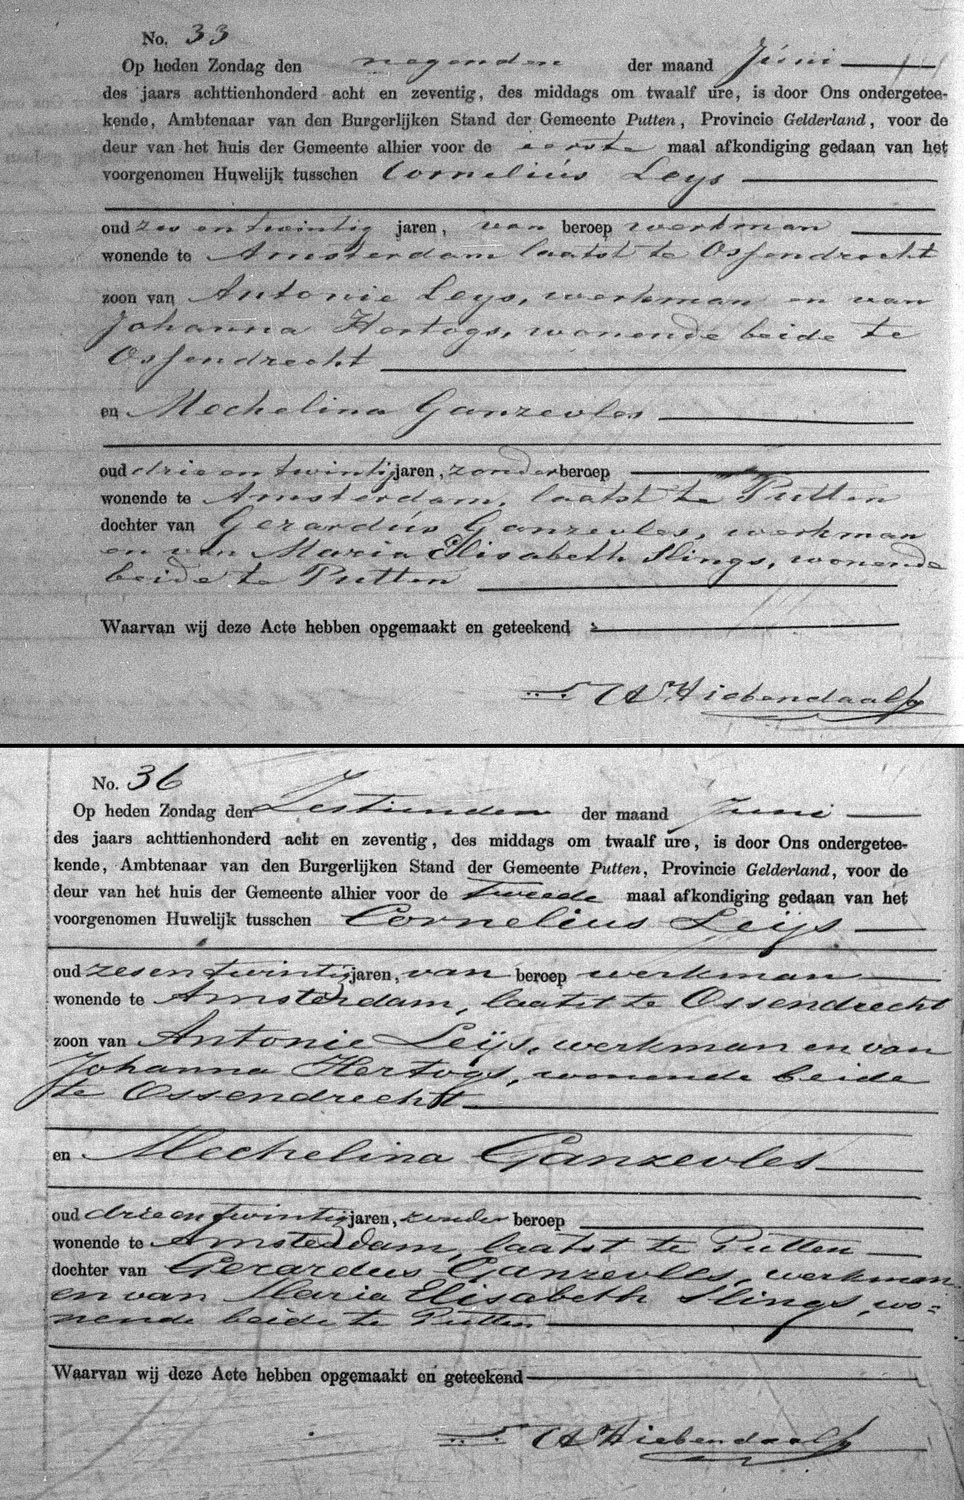 No. 33
Op heden Zondag den negenden der maand Juni
des jaars achttienhonderd acht en zeventig, des middags om twaalf ure, is door Ons ondergetee-
kende, Ambtenaar van den Burgerlijken Stand der Gemeente Putten, Provincie Gelderland, voor de
deur van het huis der Gemeente alhier voor de eerste maal afkondiging gedaan van het
voorgenomen Huwelijk tusschen Cornelius Leys
oud zes en twintig jaren, van beroep werkman
wonende te Amsterdam laatst te Ossendrecht
zoon van Antonie Leys, werkman en van
Johanna Hertogs, wonende beide te
Ossendrecht
en Mechelina Ganzevles
oud drie en twintig jaren, zonder beroep
wonende te Amsterdam, laatst te Putten
dochter van Gerardus Ganzevles, werkman
en van Maria Elisabeth Slings, wonende
beide te Putten
Waarvan wij deze Acte hebben opgemaakt en geteekend
No. 36
Op heden Zondag den Zestienden der maand Juni
des jaars achttienhonderd acht en zeventig, des middags om twaalf ure, is door Ons ondergetee-
kende, Ambtenaar van den Burgerlijken Stand der Gemeente Putten, Provincie Gelderland, voor de
deur van het huis der Gemeente alhier voor de tweede maal afkondiging gedaan van het
voorgenomen Huwelijk tusschen Cornelius Leijs
oud zes en twintig jaren, van beroep werkman
wonende te Amsterdam, laatst te Ossendrecht
zoon van Antonie Leijs, werkman en van
Johanna Hertogs, wonende beide
te Ossendrecht
en Mechelina Ganzevles
oud drie en twintig jaren, zonder beroep
wonende te Amsterdam, laatst te Putten
dochter van Gerardus Ganzevles, werkman
en van Maria Elisabeth Slings, wo=
nende beide te Putten
Waarvan wij deze Acte hebben opgemaakt en geteekend